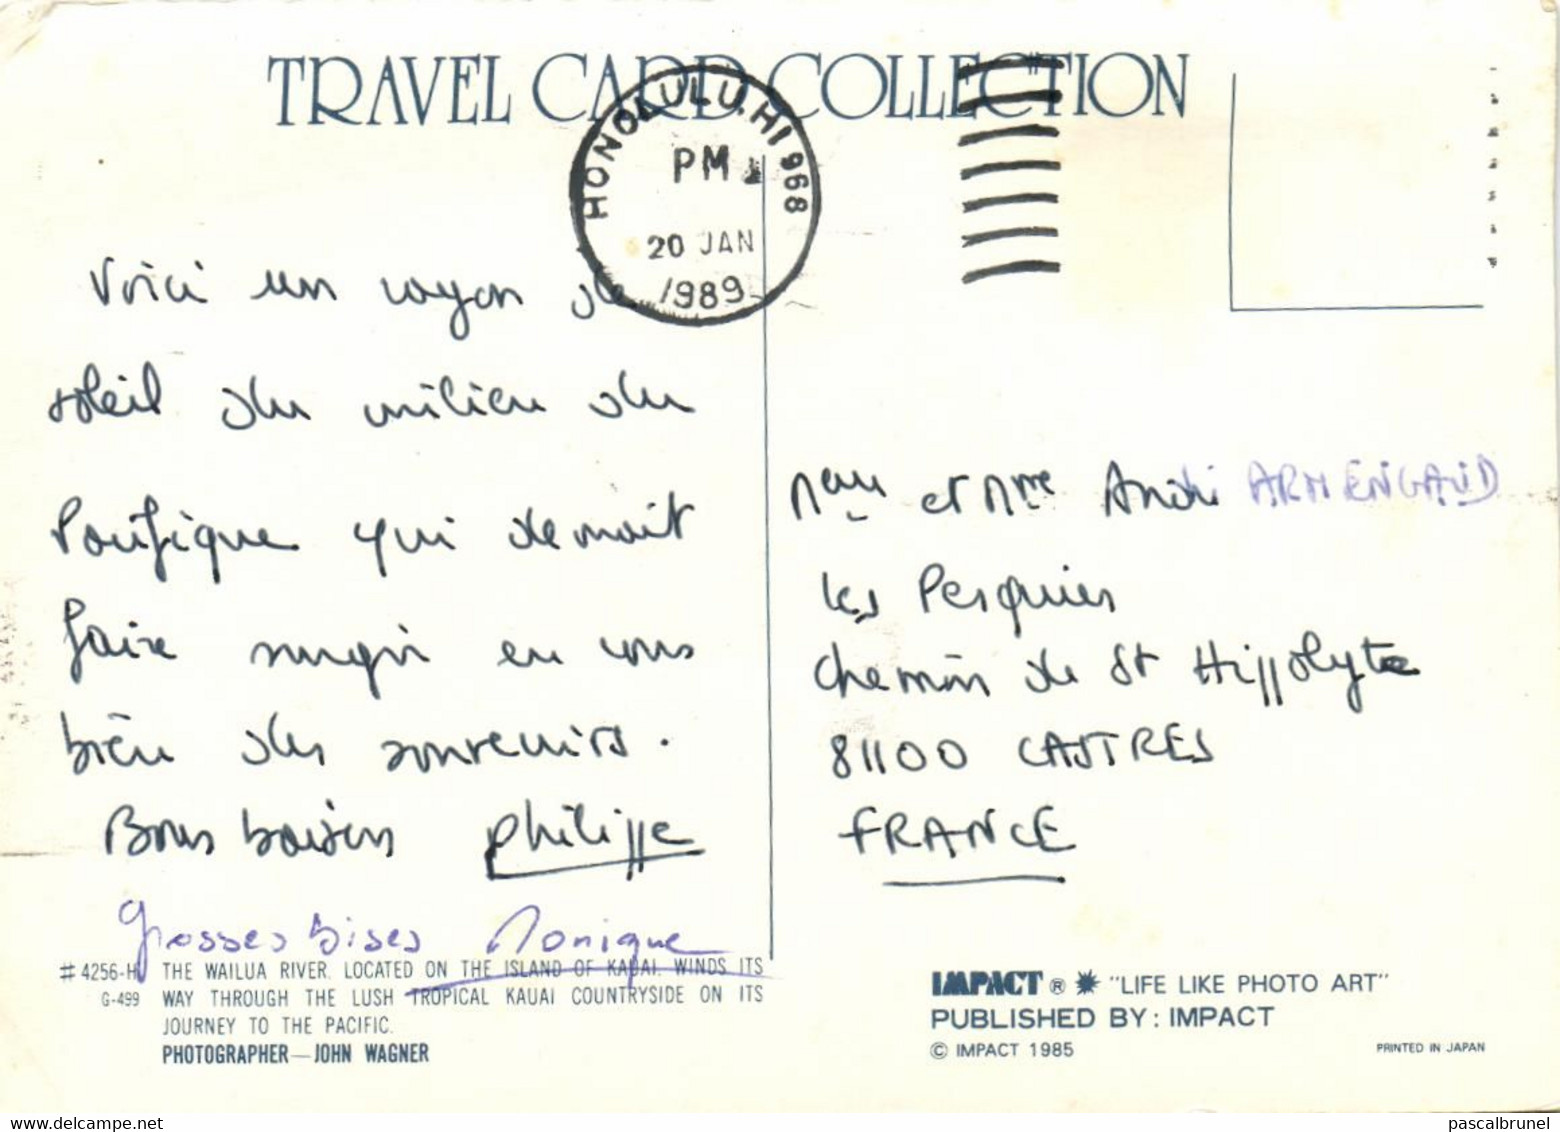 TRAVEL CARD COLLECTION
HONOLULU, HI 968
PM
20 JAN
1989
Voici un rayon de
soleil du milieu du
Pacifique qui devrait
faire surgir en vous
bien des souvenirs.
Bons baisers Philippe
Grosses bises Monique
# 4256-H THE WAILUA RIVER, LOCATED ON THE ISLAND OF KAUAI, WINDS ITS
G-499 WAY THROUGH THE LUSH TROPICAL KAUAI COUNTRYSIDE ON ITS
JOURNEY TO THE PACIFIC.
PHOTOGRAPHER—JOHN WAGNER
et Mme André ARMENGAUD
Les Pesquiers
Chemin de St Hippolyte
81100 CASTRES
FRANCE
IMPACT ® "LIFE LIKE PHOTO ART"
PUBLISHED BY: IMPACT
© IMPACT 1985
PRINTED IN JAPAN
pascalbrunel